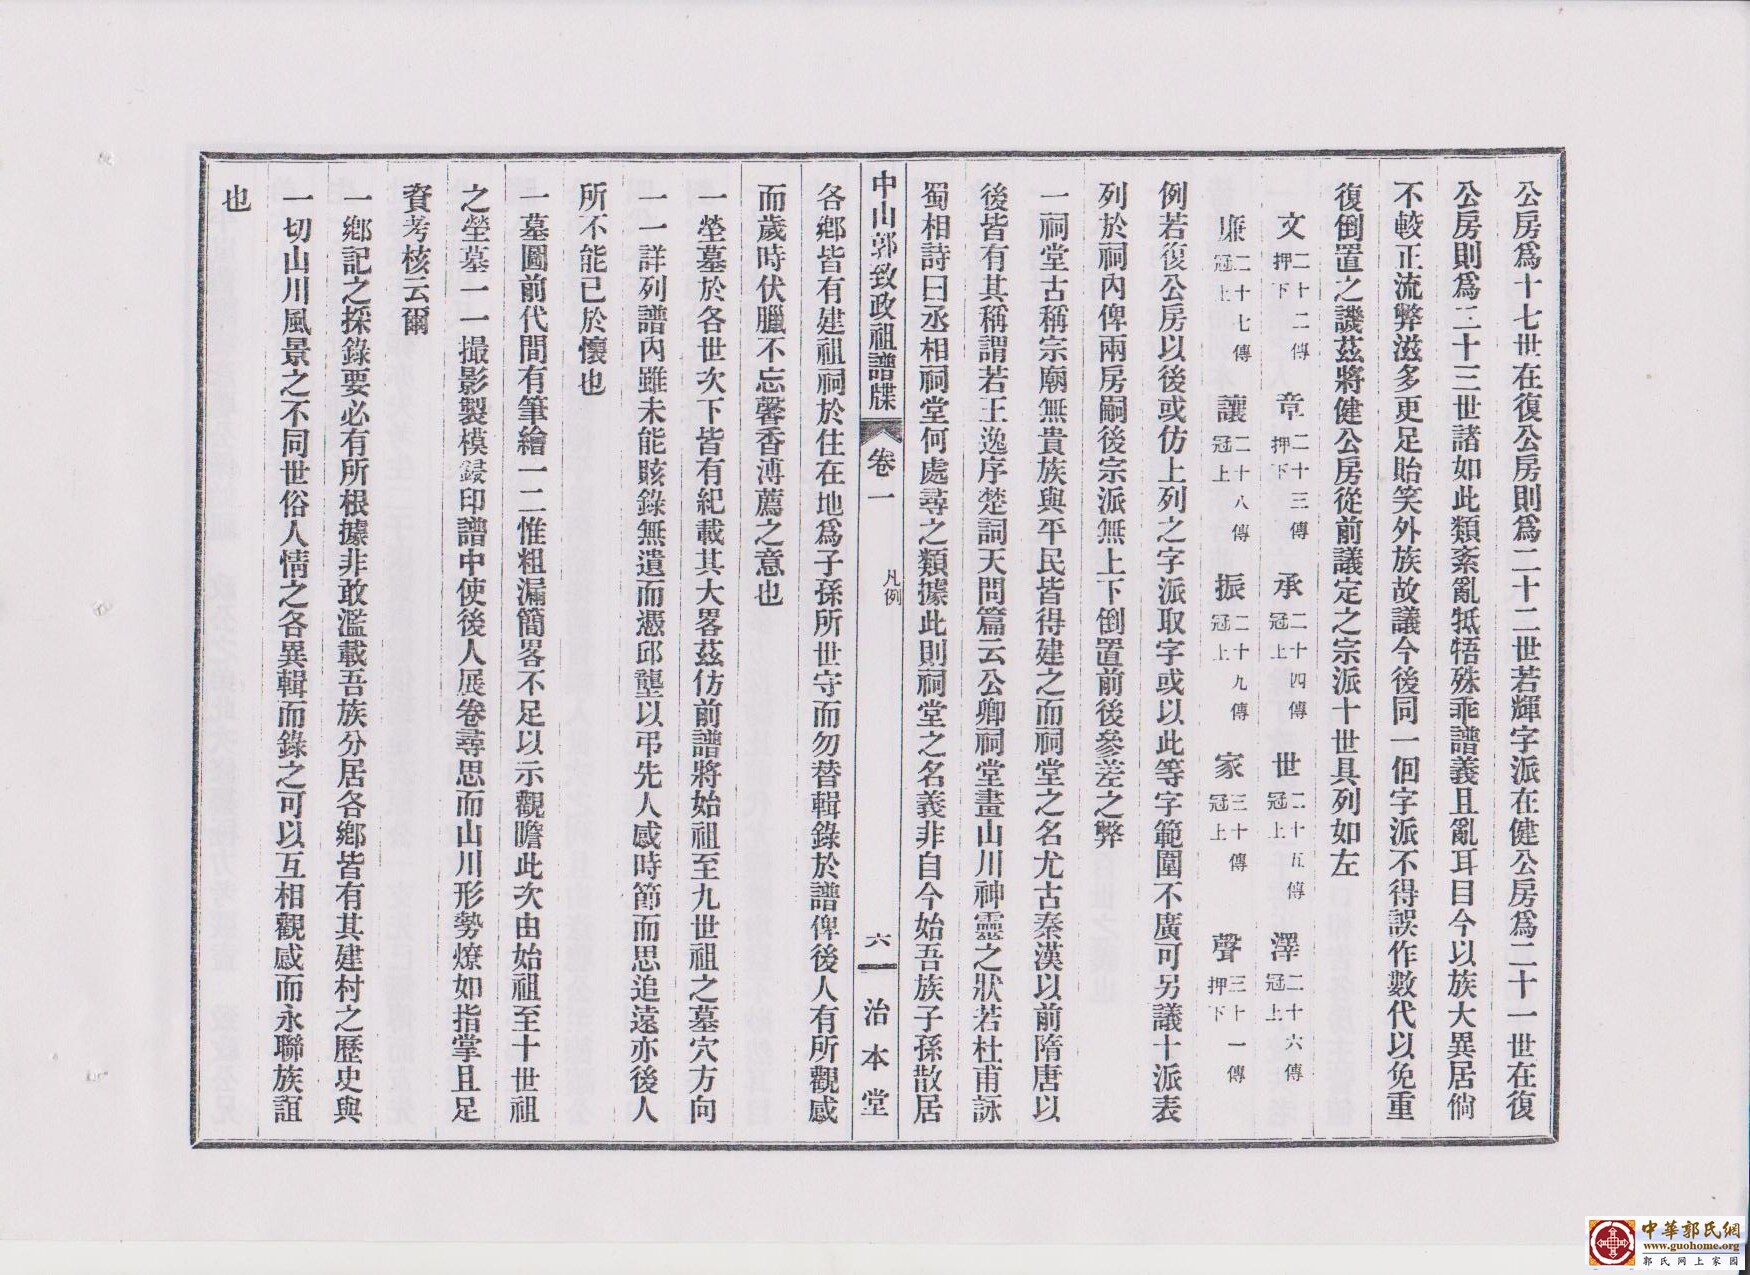 公房爲十七世在復公房則爲二十二世若輝字派在健公房爲二十一世在復
公房則爲二十三世諸如此類紊亂牴牾殊乖譜義且亂耳目今以族大異居倘
不較正流弊滋多更足貽笑外族故議今後同一個字派不得誤作數代以免重
復倒置之譏茲將健公房從前議定之宗派十世具列如左
文二十二傳押下 章二十三傳押下 承二十四傳冠上 世二十五傳冠上 澤二十六傳冠上
廉二十七傳冠上 讓二十八傳冠上 振二十九傳冠上 家三十傳冠上 聲三十一傳押下
例若復公房以後或仿上列之字派取字或以此等字範圍不廣可另議十派表
列於祠內俾兩房嗣後宗派無上下倒置前後參差之弊
一祠堂古稱宗廟無貴族與平民皆得建之而祠堂之名尤古秦漢以前隋唐以
後皆有其稱謂若王逸序楚詞天問篇云公卿祠堂畫山川神靈之狀若杜甫詠
蜀相詩曰丞相祠堂何處尋之類據此則祠堂之名義非自今始吾族子孫散居
中山郭致政祖譜牒 卷一 凡例 六 治本堂
各鄉皆有建祖祠於住在地爲子孫所世守而勿替輯錄於譜俾後人有所觀感
而歲時伏臘不忘馨香溥薦之意也
一塋墓於各世次下皆有紀載其大畧茲仿前譜將始祖至九世祖之墓穴方向
一一詳列譜內雖未能賅錄無遺而憑邱壟以弔先人感時節而思追遠亦後人
所不能已於懷也
一墓圖前代間有筆繪一二惟粗漏簡畧不足以示觀瞻此次由始祖至十世祖
之塋墓一一撮影製模鋟印譜中使後人展卷尋思而山川形勢燎如指掌且足
資考核云爾
一鄉記之採錄要必有所根據非敢濫載吾族分居各鄉皆有其建村之歷史與
一切山川風景之不同世俗人情之各異輯而錄之可以互相觀感而永聯族誼
也
中華郭氏網
www.guohome.org
郭氏网上家园